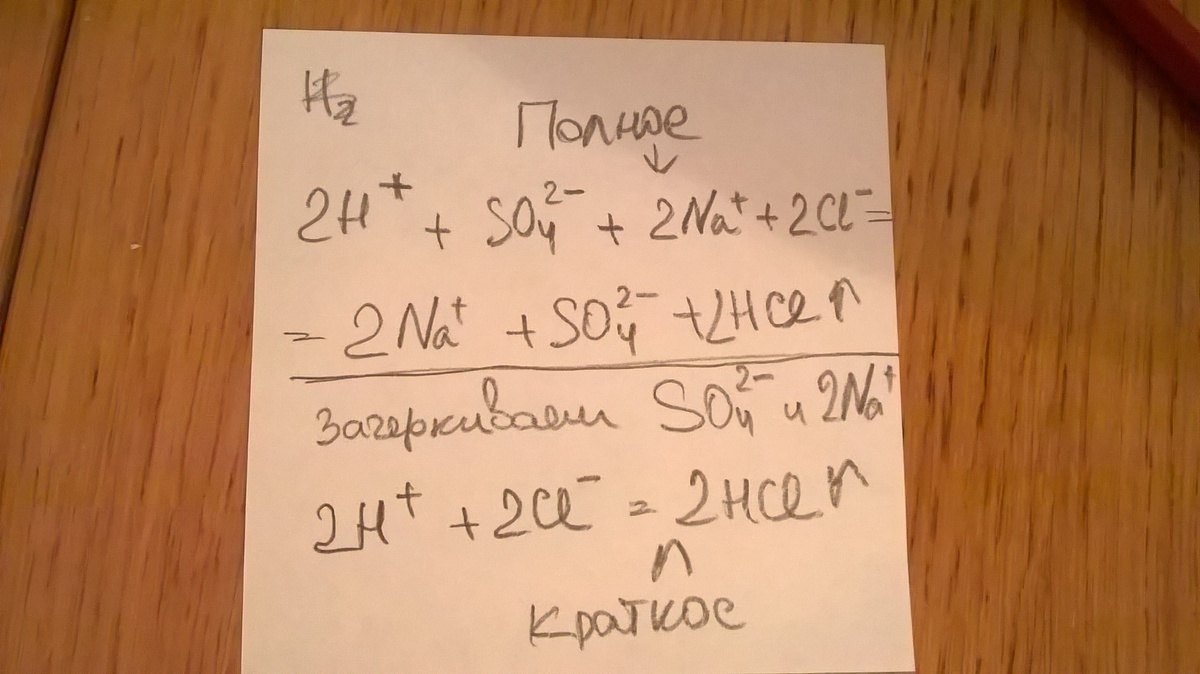 H₂
Полное
↓
2H⁺ + SO₄²⁻ + 2Na⁺ + 2Cl⁻ =
= 2Na⁺ + SO₄²⁻ + 2HCl ↑
Зачеркиваем SO₄²⁻ и 2Na⁺
2H⁺ + 2Cl⁻ = 2HCl ↑
↑
Краткое